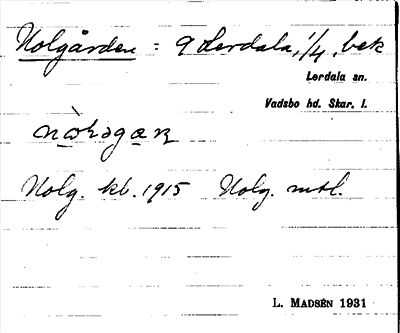 Nolgården = 9 Lerdala, 1/4, bek
Lerdala sn.
Vadsbo hd. Skar. l.
Nolg. kb. 1915 Nolg. mtl.
L. MADSÉN 1931